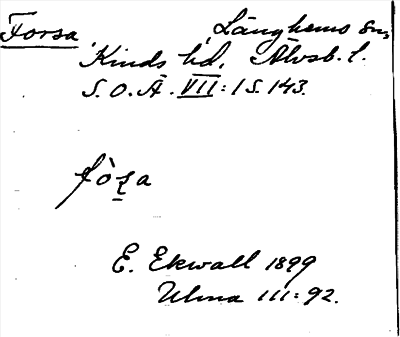 Forsa, Länghems sn,
Kinds hd, Älvsb. l.
S. O. Ä. VII: 1 S. 143.
E. Ekwall 1899
Ulma 111: 92.